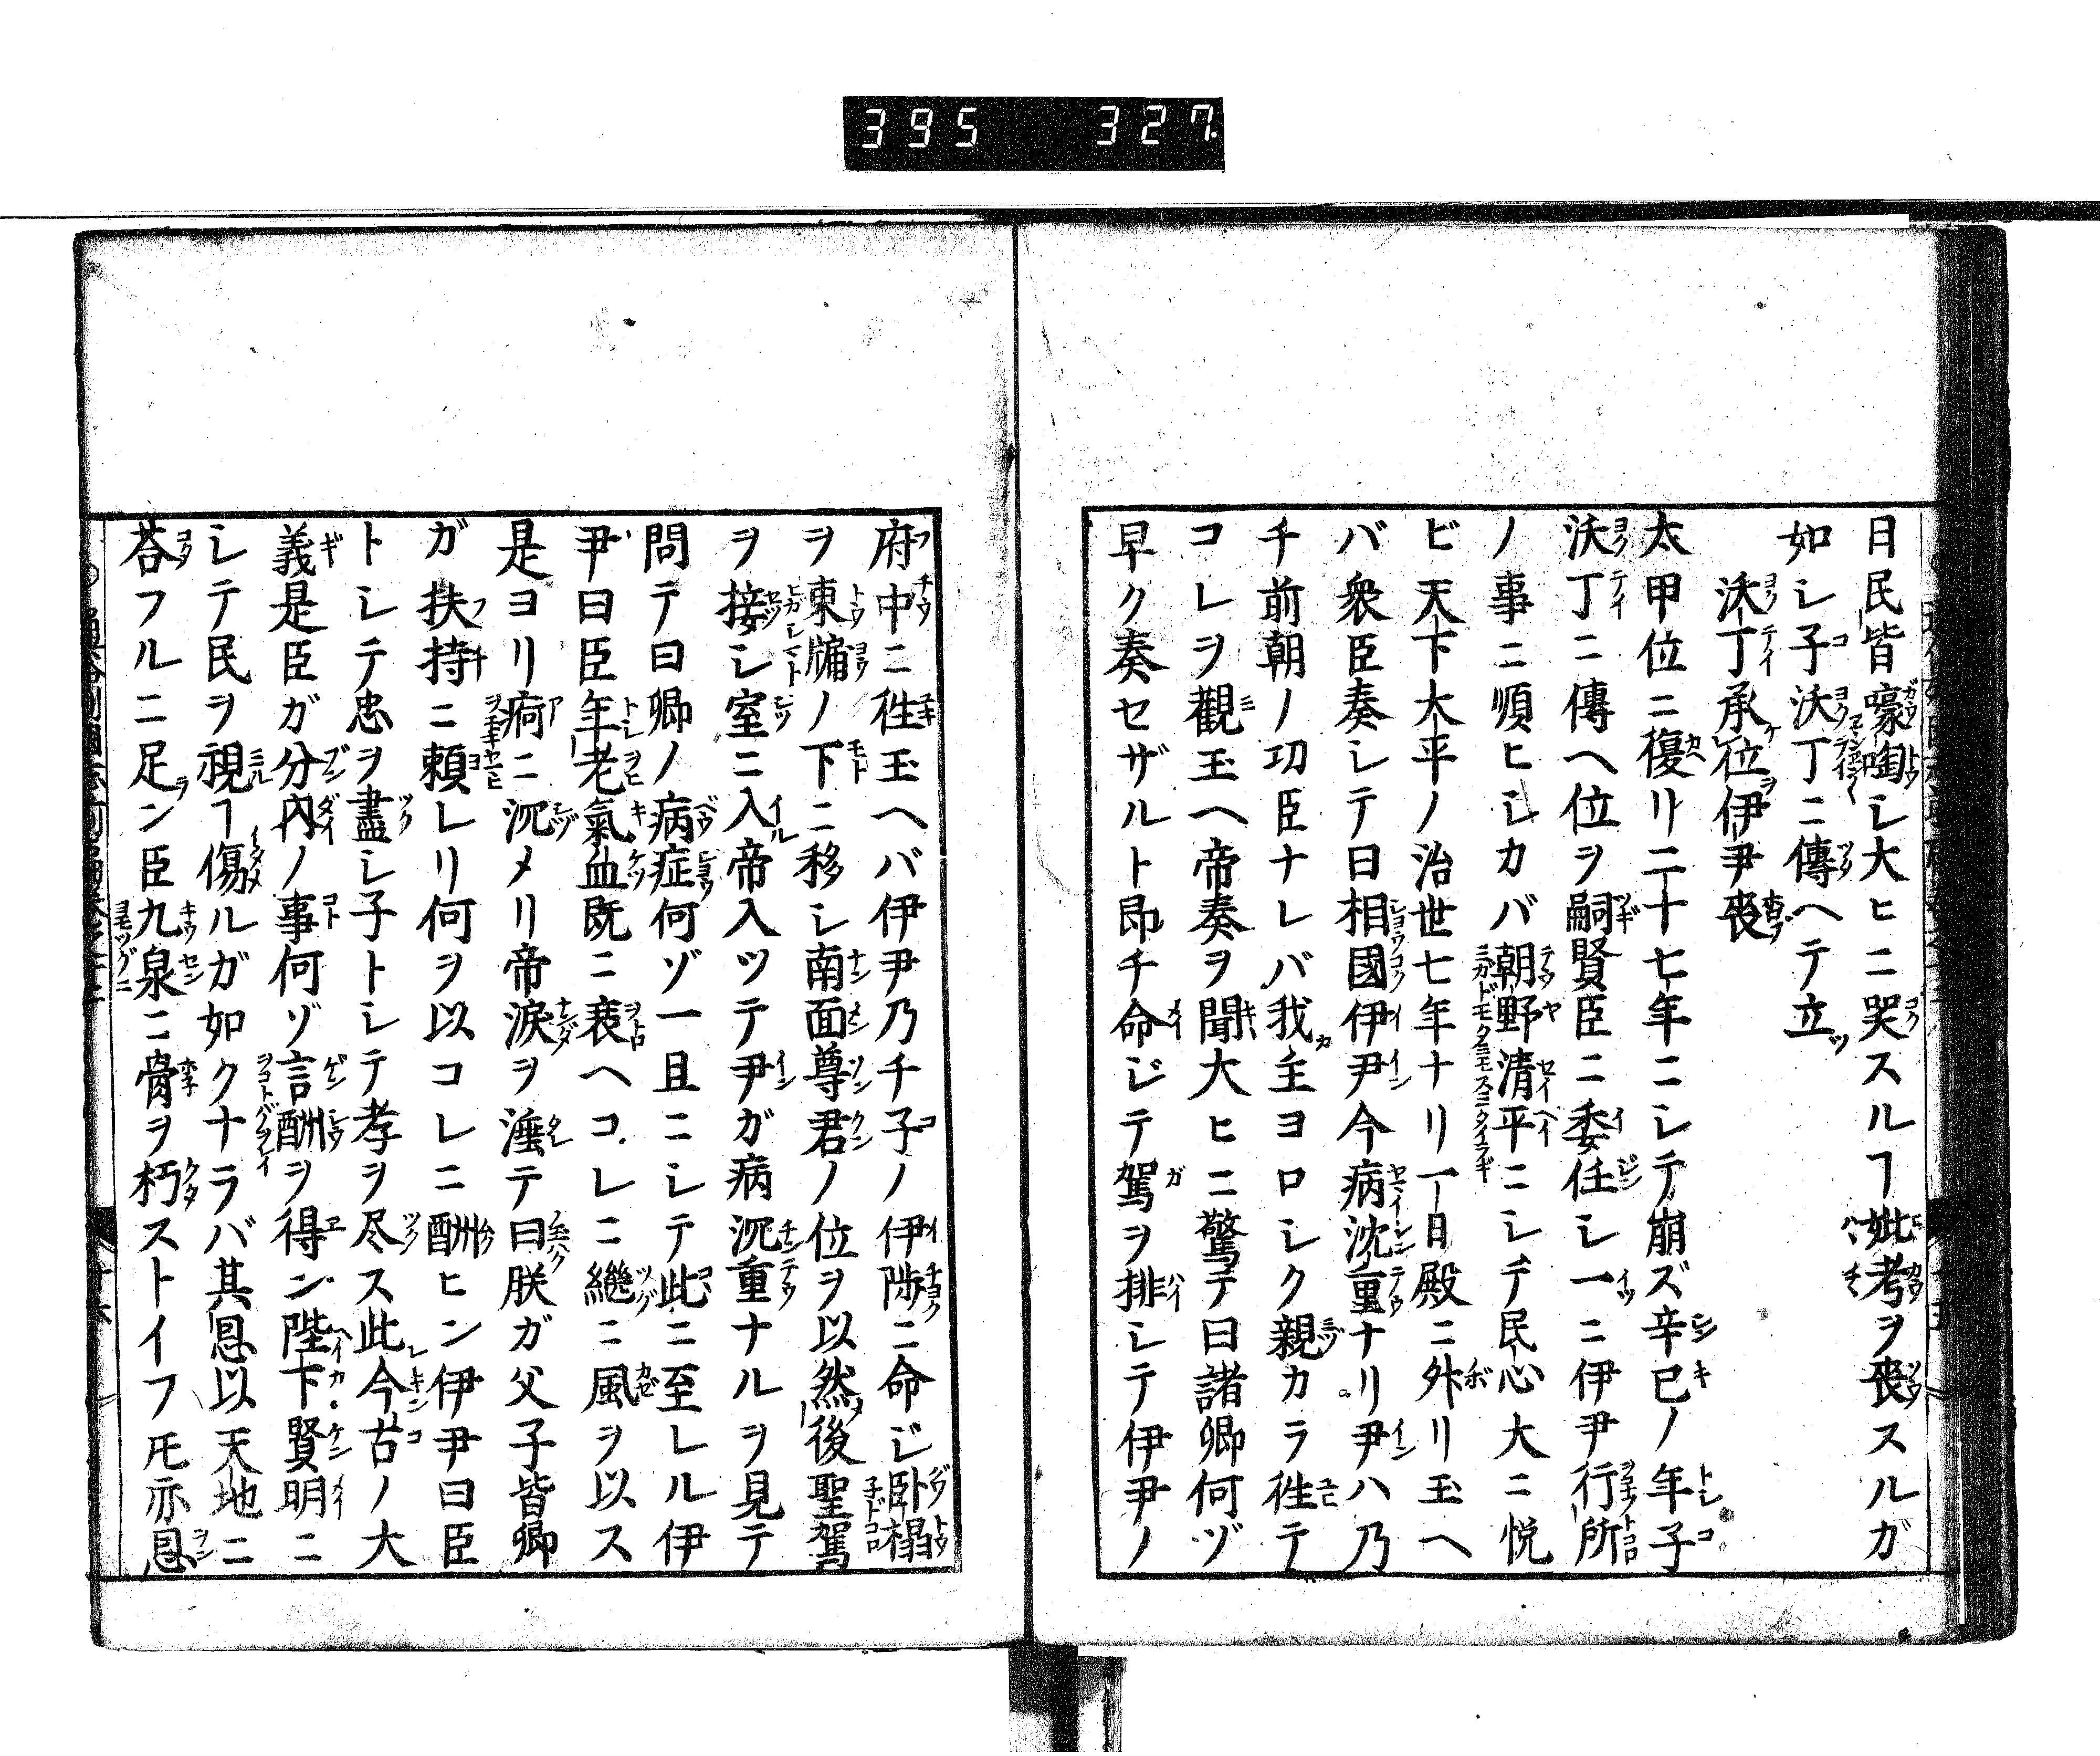 395 327
日民皆嚎啕シ大ヒニ哭スルヿ妣考ヲ喪スルガ
如シ子沃丁ニ傳ヘテ立
沃丁承位伊尹喪
太甲位ニ復リ二十七年ニシテ崩ズ辛巳ノ年子
沃丁ニ傳ヘ位ヲ嗣賢臣ニ委任シ一ニ伊尹行所
ノ事ニ順ヒシカバ朝野清平ニシテ民心大ニ悦
ビ天下大平ノ治世七年ナリ一日殿ニ外リ玉ヘ
バ衆臣奏シテ曰相國伊尹今病沈重ナリ尹ハ乃
チ前朝ノ功臣ナレバ我主ヨロシク親カラ徃テ
コレヲ觀玉ヘ帝奏ヲ聞大ヒニ驚テ曰諸卿何ヅ
早ク奏セザルト即チ命ジテ駕ヲ排シテ伊尹ノ
府中ニ徃玉ヘバ伊尹乃チ子ノ伊陟ニ命ジ臥榻
ヲ東牖ノ下ニ移シ南面尊君ノ位ヲ以然後聖駕
ヲ接シ室ニ入帝入ツテ尹ガ病沉重ナルヲ見テ
問テ曰卿ノ病症何ゾ一旦ニシテ此ニ至レル伊
尹曰臣年老氣血既ニ衰ヘコレニ繼ニ風ヲ以ス
是ヨリ痾ニ沉メリ帝淚ヲ湩テ曰朕ガ父子皆卿
ガ扶持ニ頼レリ何ヲ以コレニ酬ヒン伊尹曰臣
トシテ忠ヲ盡シ子トシテ孝ヲ尽ス此今古ノ大
義是臣ガ分內ノ事何ゾ言酬ヲ得ン陛下賢明ニ
シテ民ヲ視ヿ傷ルガ如クナラバ其恩以天地ニ
荅フルニ足ン臣九泉ニ骨ヲ朽ストイフ𪜈亦恩